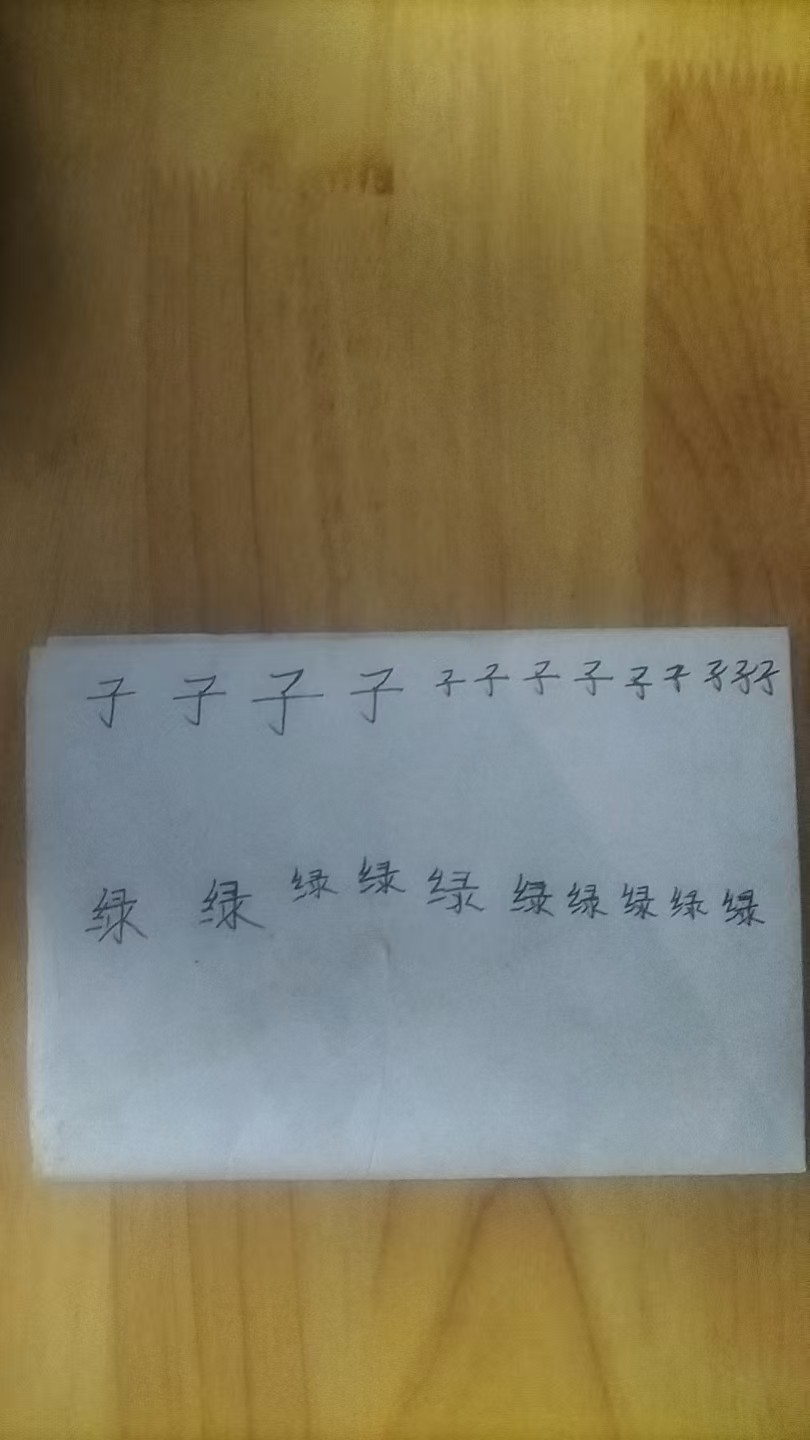 子子子子子子子子子子子子子
绿绿绿绿绿绿绿绿绿绿